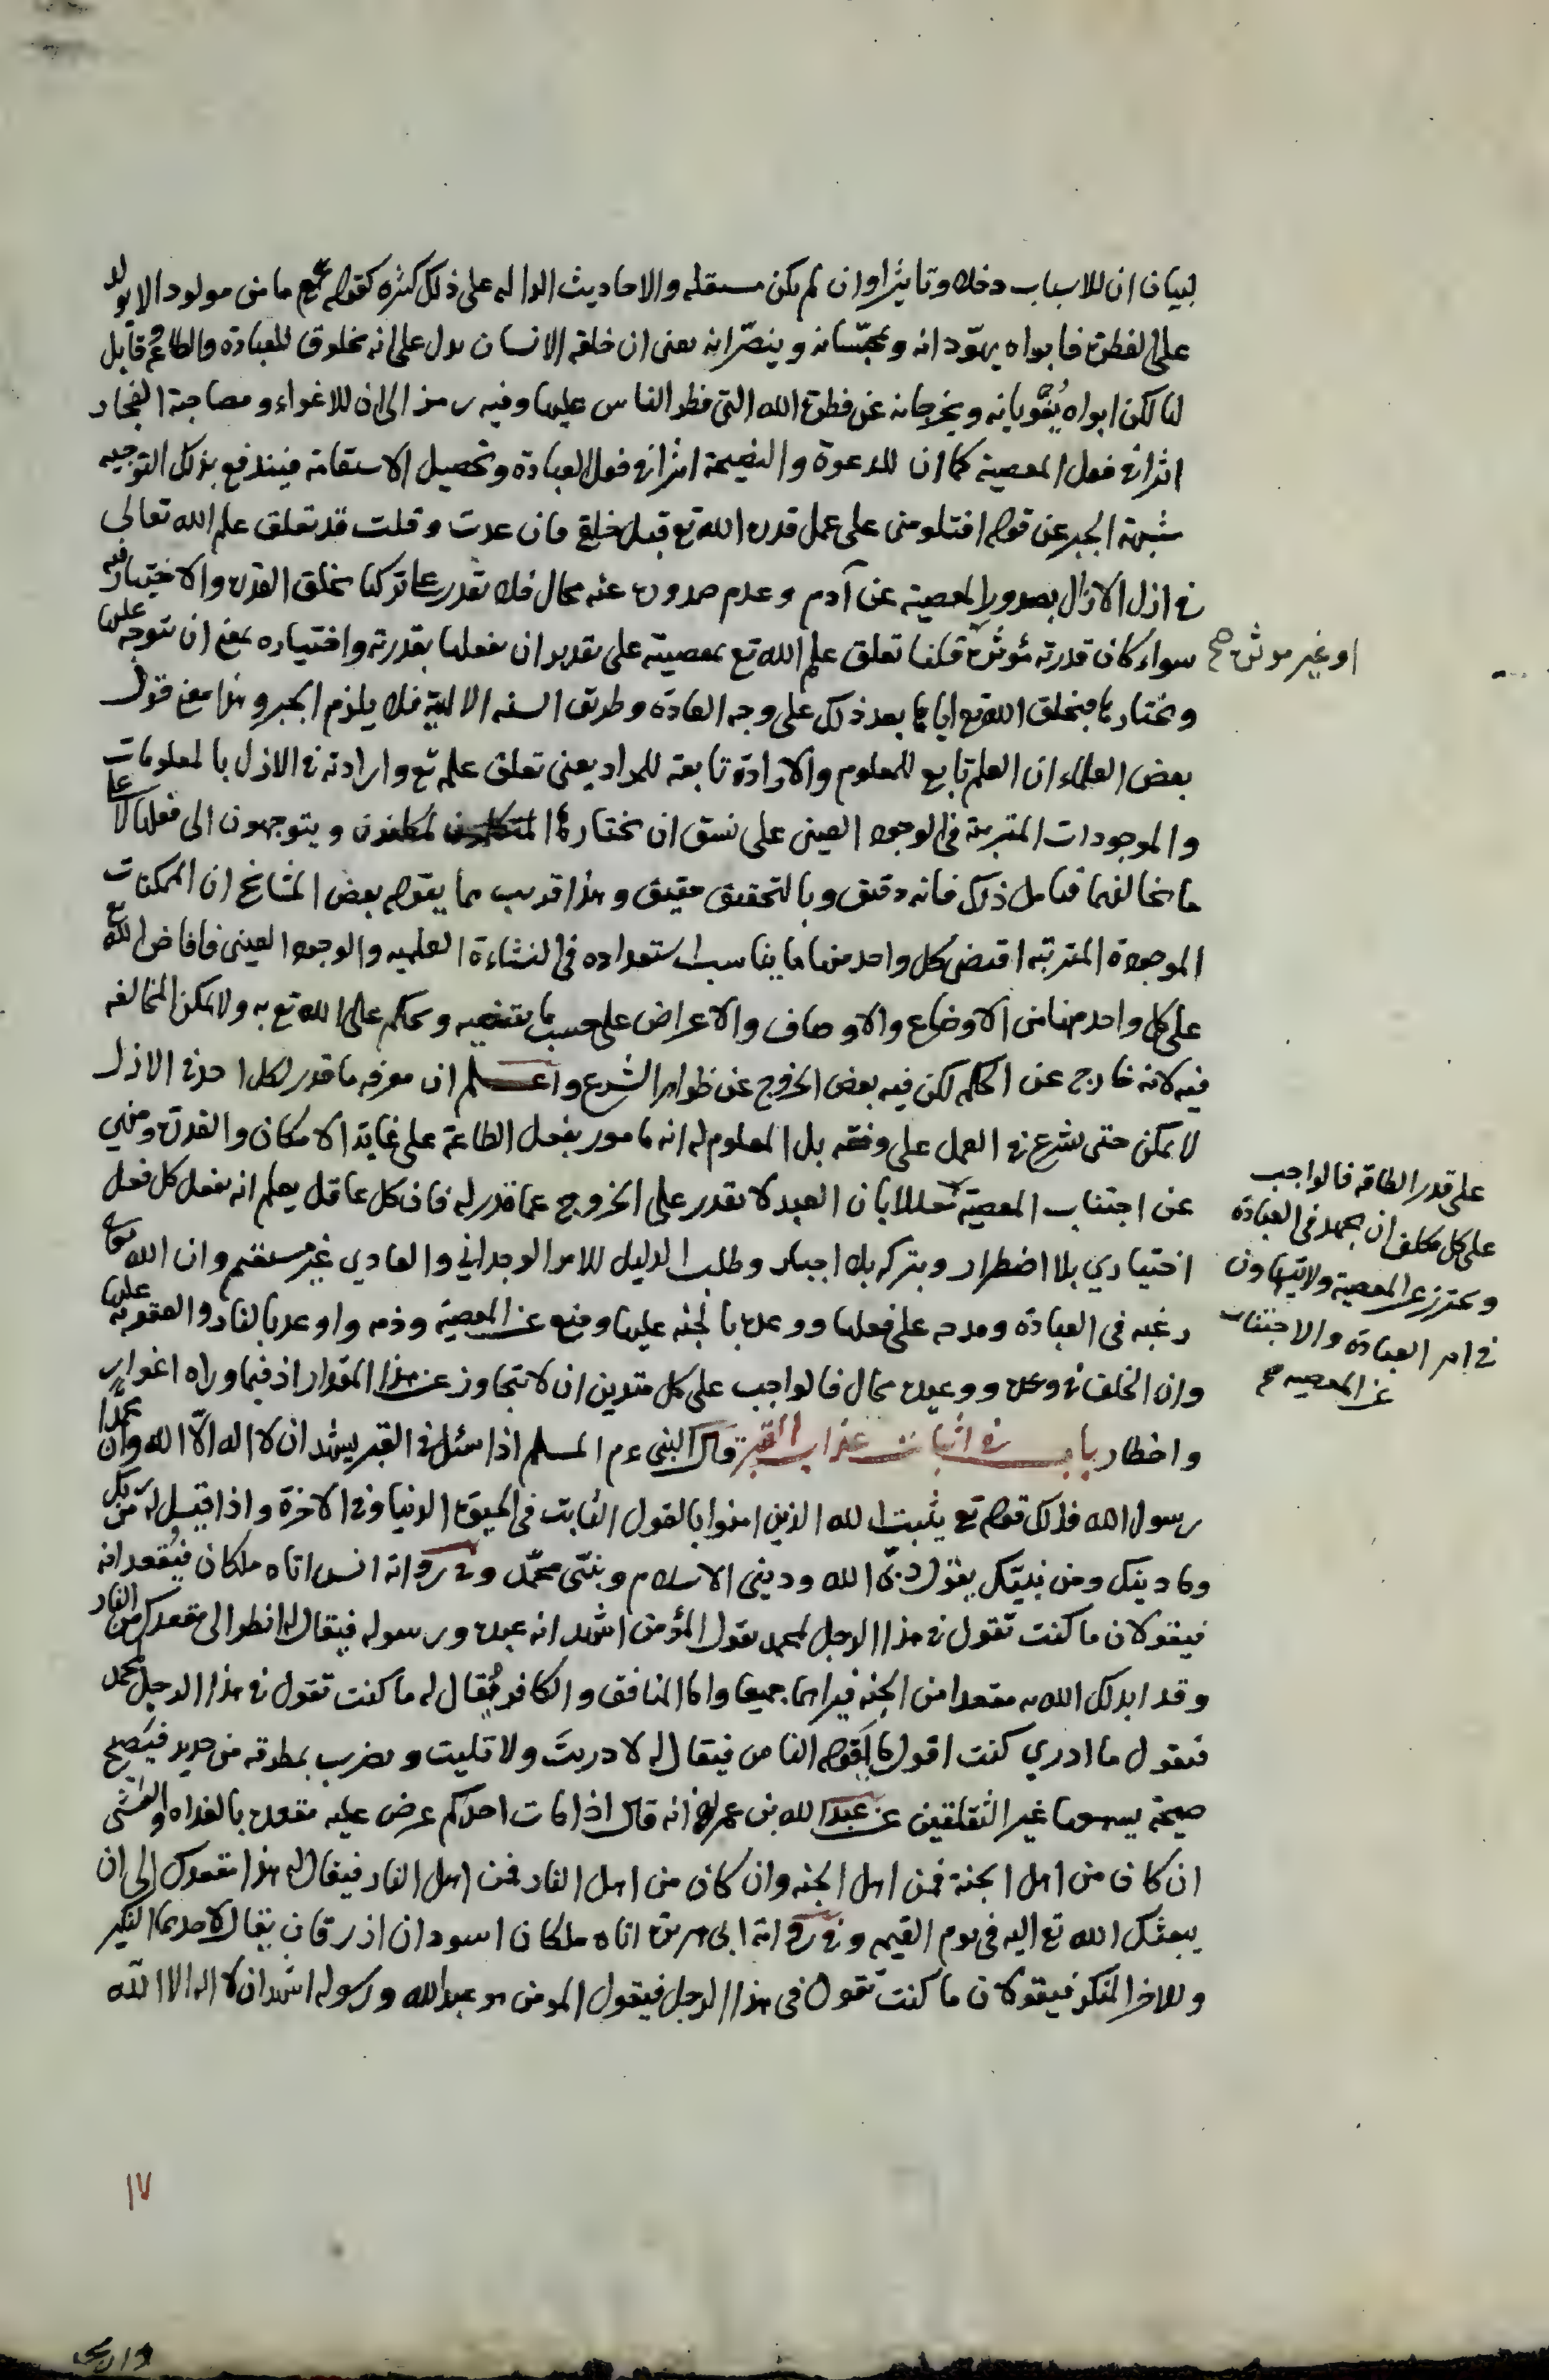 لبيان ان للاسباب دخلا وتاثيرا وان لم يكن مستقله والاحاديث الداله على ذلك كثيره كقوله عم ما من مولود الا يولد
على الفطرة فابواه يهودانه ويمجسانه وينصرانه يعنى ان خلقه الانسان يدل على انه مخلوق للعبادة والطاعة وقابل
لها لكن ابواه يغويانه ويخرجانه عن فطرة الله التى فطر الناس عليها وفيه رمز الى ان للاغواء ومصاحبة الفجار
اثرا فى فعل المعصية كما ان للدعوة والنصيحة اثرا فى فعل العبادة وتحصيل الاستقامة فيندفع بذلك التوجيه
شبهة الجبر عن قوله افتلومنى على عمل قدره الله تع قبل خلقى فان عدت وقلت قد تعلق علم الله تعالى
فى ازل الازال بصدور المعصية عن آدم وعدم صدوره عنه محال فلا يقدر على تركها بخلق القدرة والاختيار فيه
سواء كان قدرته مؤثرة قلنا تعلق علم الله تع بمعصيته على تقدير ان يفعلها بقدرته واختياره بمعنى ان يتوجه عليها
او غير موثرة صح
ويختارها فيخلق الله تع اياها بعد ذلك على وجه العادة وطريق السنه الالهية فلا يلزم الجبر وهذا معنى قول
بعض العلماء ان العلم تابع للمعلوم والارادة تابعة للمراد يعنى تعلق علمه تع وارادته فى الازل بالمعلومات
والموجودات المترتبة فى الوجود العينى على نسق ان يختارها المكلفون ويتوجهون الى فعلها لا على
ما يخالفها فتامل ذلك فانه دقيق وبالتحقيق حقيق وهذا قريب مما يقوله بعض المشايخ ان الممكنات
الموجودة المترتبه اقتضى كل واحد منها ما يناسب استعداده فى النشاءة العلميه والوجود العينى فافاض الله تع
على كل واحد منها من الاوضاع والاوصاف والاعراض على حسب ما يقتضيه وحكم على الله تع به ولا يمكن المخالفه
فيه لانه خارج عن الحكم لكن فيه بعض الخروج عن ظواهر الشرع واعلم ان معرفه ما قدر لكل احد فى الازل
لا يمكن حتى يشرع فى العمل على وفقه بل المعلوم له انه مامور بفعل الطاعة على غاية الامكان والقدرة ومنهي
عن اجتناب المعصية معللا بان العبد لا يقدر على الخروج عما قدر له فان كل عاقل يعلم انه يفعل كل فعل
على قدر الطاقه فالواجب
على كل مكلف ان يجهد فى العبادة
ويحترز عن المعصية ولا يتهاون
فى امر العبادة والاجتناب
عن المعصيه صح
اختياري بلا اضطرار ويتركه بلا اجبار وطلب الدليل للامر الوجداني والعادي غير مستقيم وان الله تعالى
رغبه فى العبادة ومدحه على فعلها ووعده بالجنه عليها ومنع عن المعصية وذمه واوعده بالنار والعقوبة عليها
وان الخلف فى وعده ووعيده محال فالواجب على كل متدين ان لا يتجاوز عن هذا المقدار اذ فيما وراه اغوار
واخطار باب فى اثبات عذاب القبر قال النبى عم المسلم اذا سئل فى القبر يشهد ان لا اله الا الله وان محمدا
رسول الله فذلك قوله تع يثبت الله الذين امنوا بالقول الثابت فى الحيوة الدنيا وفى الاخرة واذا قيل له من ربك
وما دينك ومن نبيك يقول ربى الله ودينى الاسلام ونبيى محمد وفى رواية انس اتاه ملكان فيقعدانه
فيقولان ما كنت تقول فى هذا الرجل لمحمد يقول المؤمن اشهد انه عبده ورسوله فيقال له انظر الى مقعدك من النار
وقد ابدلك الله به مقعدا من الجنه فيراهما جميعا واما المنافق والكافر فيقال له ما كنت تقول فى هذا الرجل محمد
فيقول ما ادري كنت اقول ما يقوله الناس فيقال له لا دريت ولا تليت ويضرب بمطرقه من حديد فيصيح
صيحة يسمعها غير الثقلين عن عبد الله بن عمر انه قال اذا مات احدكم عرض عليه مقعده بالغداه والعشى
ان كان من اهل الجنة فمن اهل الجنه وان كان من اهل النار فمن اهل النار فيقال له هذا مقعدك الى ان
يبعثك الله تع اليه فى يوم القيمه وفى رواية ابى هريرة اتاه ملكان اسودان ازرقان يقال لاحدهما النكير
وللاخر المنكر فيقولان ما كنت تقول فى هذا الرجل فيقول المومن هو عبد الله ورسوله اشهد ان لا اله الا الله
١٧